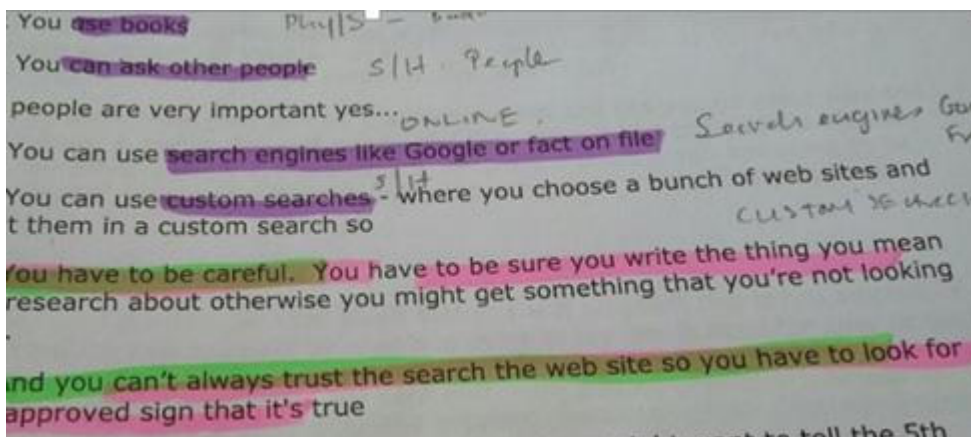 You use books Phy/S -
You can ask other people S/H People
people are very important yes... ONLINE.
You can use search engines like Google or fact on file Search engines
S/H
You can use custom searches - where you choose a bunch of web sites and
t them in a custom search so CUSTOM
You have to be careful. You have to be sure you write the thing you mean
research about otherwise you might get something that you're not looking
.
nd you can't always trust the search the web site so you have to look for
approved sign that it's true
to tell the 5th